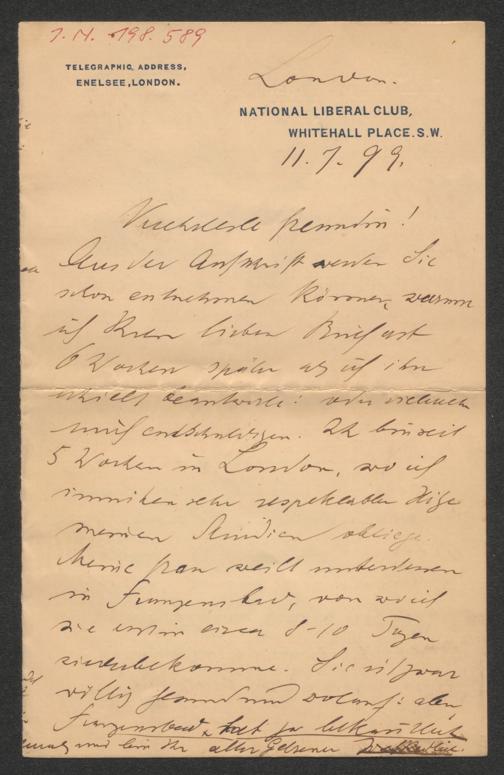 I.N. 198.589
TELEGRAPHIC ADDRESS,
ENELSEE, LONDON.
London.
NATIONAL LIBERAL CLUB,
WHITEHALL PLACE. S.W.
11. 7. 99.
Verehrteste Freundin!
Aus der Aufschrift werden Sie
schon entnehmen können, warum
ich Ihren lieben Brief erst
6 Wochen später als ich ihn
erhielt beantworte: oder vielmehr
mich entschuldigen. Ich bin seit
5 Wochen in London, wo ich
inmitten sehr respektabler Hitze
meinen Studien obliege.
Meine Frau weilt unterdessen
in Franzensbad, von wo ich
sie erst in circa 8-10 Tagen
wiederbekomme. Sie ist zwar
völlig gesund und wolauf: aber
Franzensbad hat ja bekanntlich
und bin Ihr alter